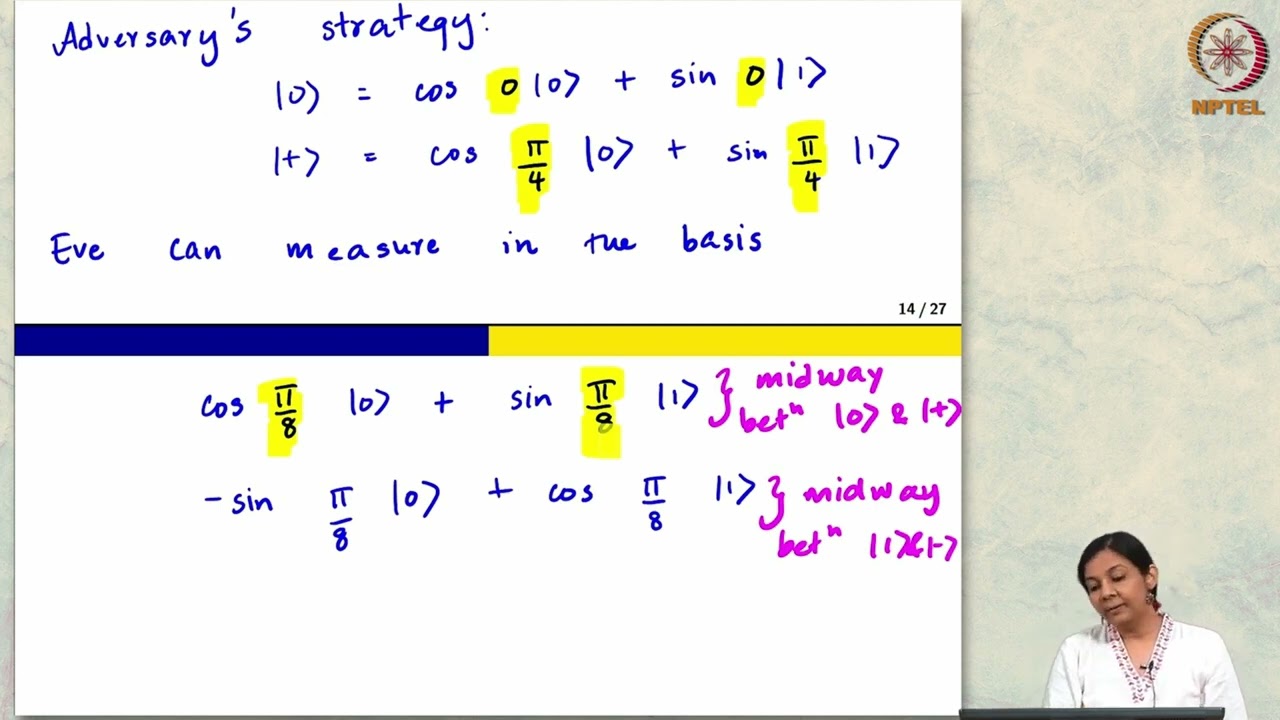 Adversary's strategy:
|0> = cos 0 |0> + sin 0 |1>
|+> = cos π/4 |0> + sin π/4 |1>
Eve can measure in the basis
14 / 27
cos π/8 |0> + sin π/8 |1> } midway
betⁿ |0> & |+>
- sin π/8 |0> + cos π/8 |1> } midway
betⁿ |1> & |->
NPTEL